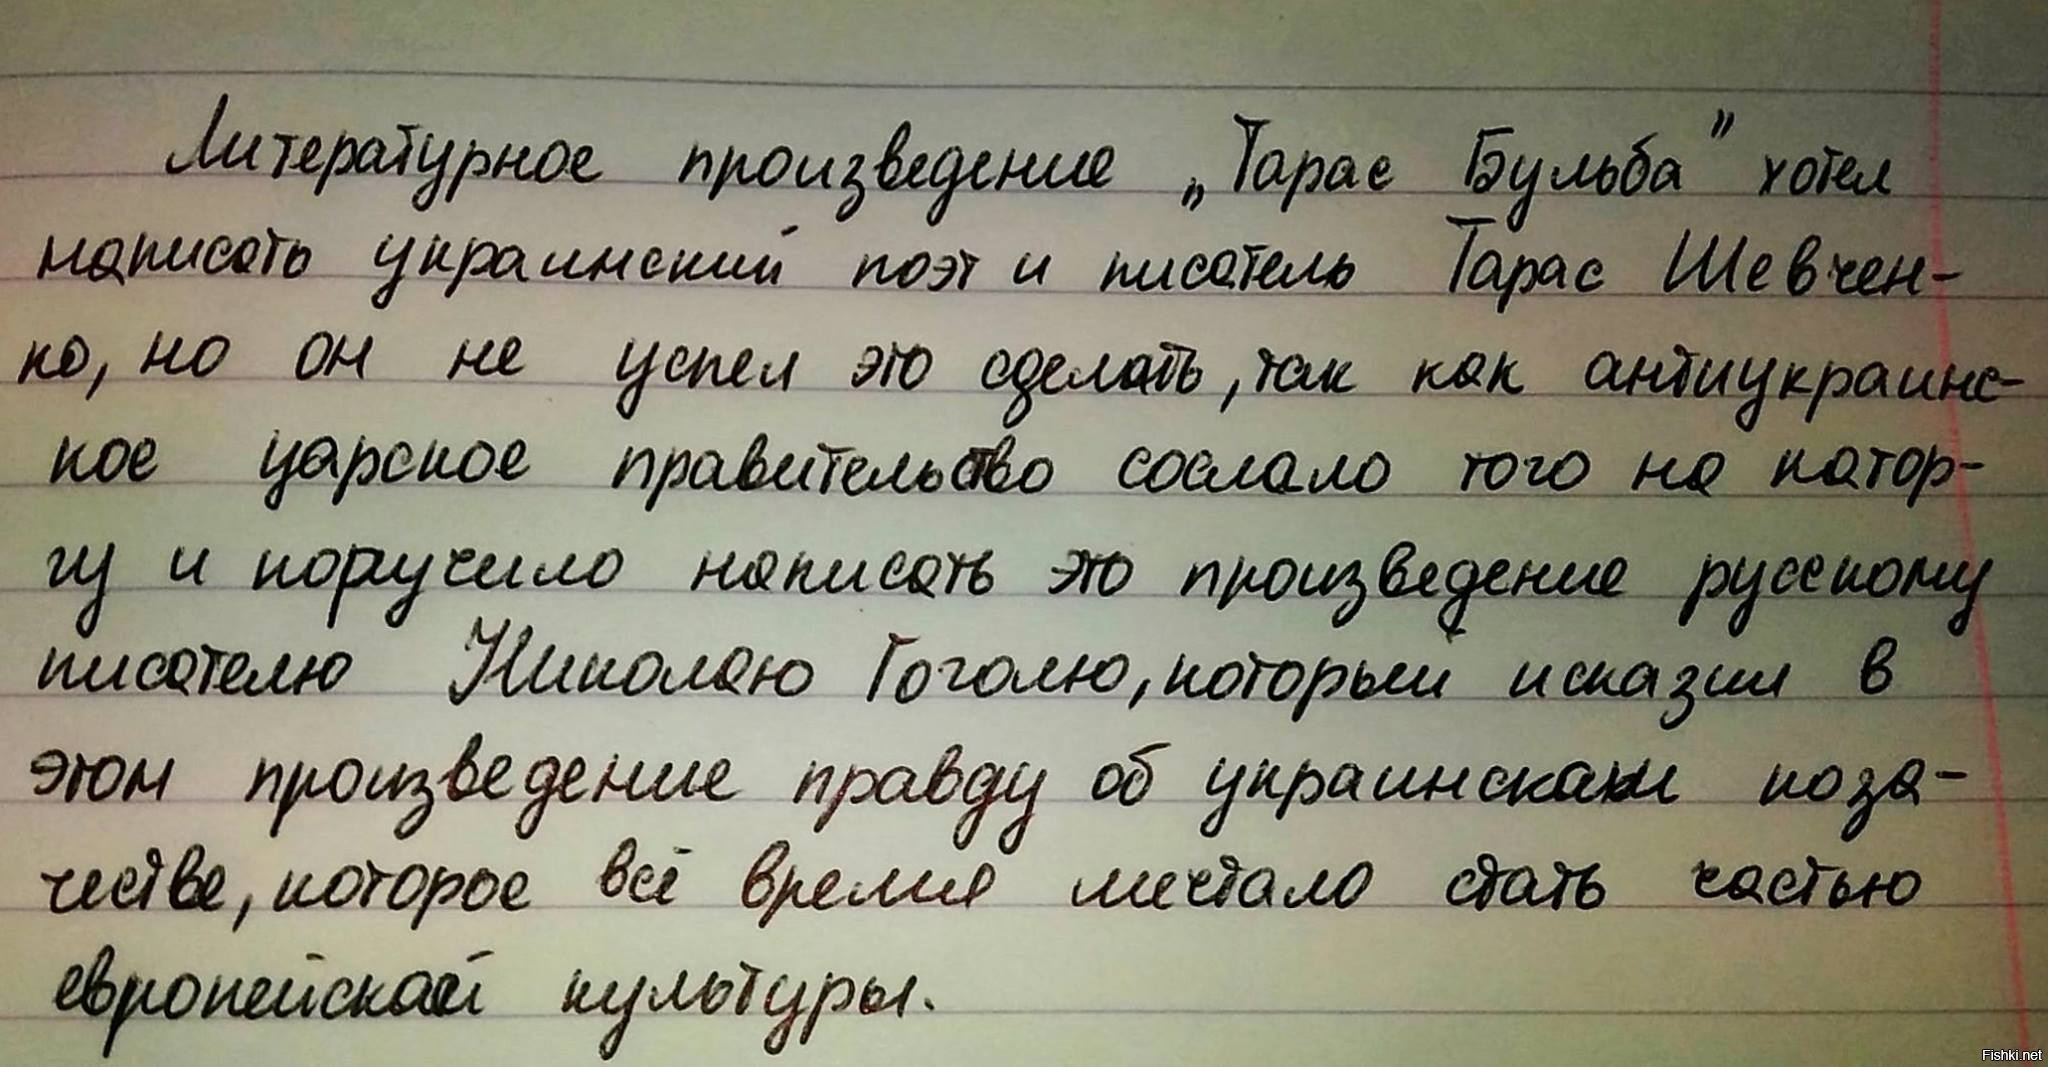 Литературное произведение „Тарас Бульба” хотел
написать украинский поэт и писатель Тарас Шевчен-
ко, но он не успел это сделать, так как антиукраинс-
кое царское правительство сослало того на катор-
гу и поручило написать это произведение русскому
писателю Николаю Гоголю, который исказил в
этом произведение правду об украинскаки коза-
честве, которое всё время мечтало стать частью
европейской культуры.
Fishki.net